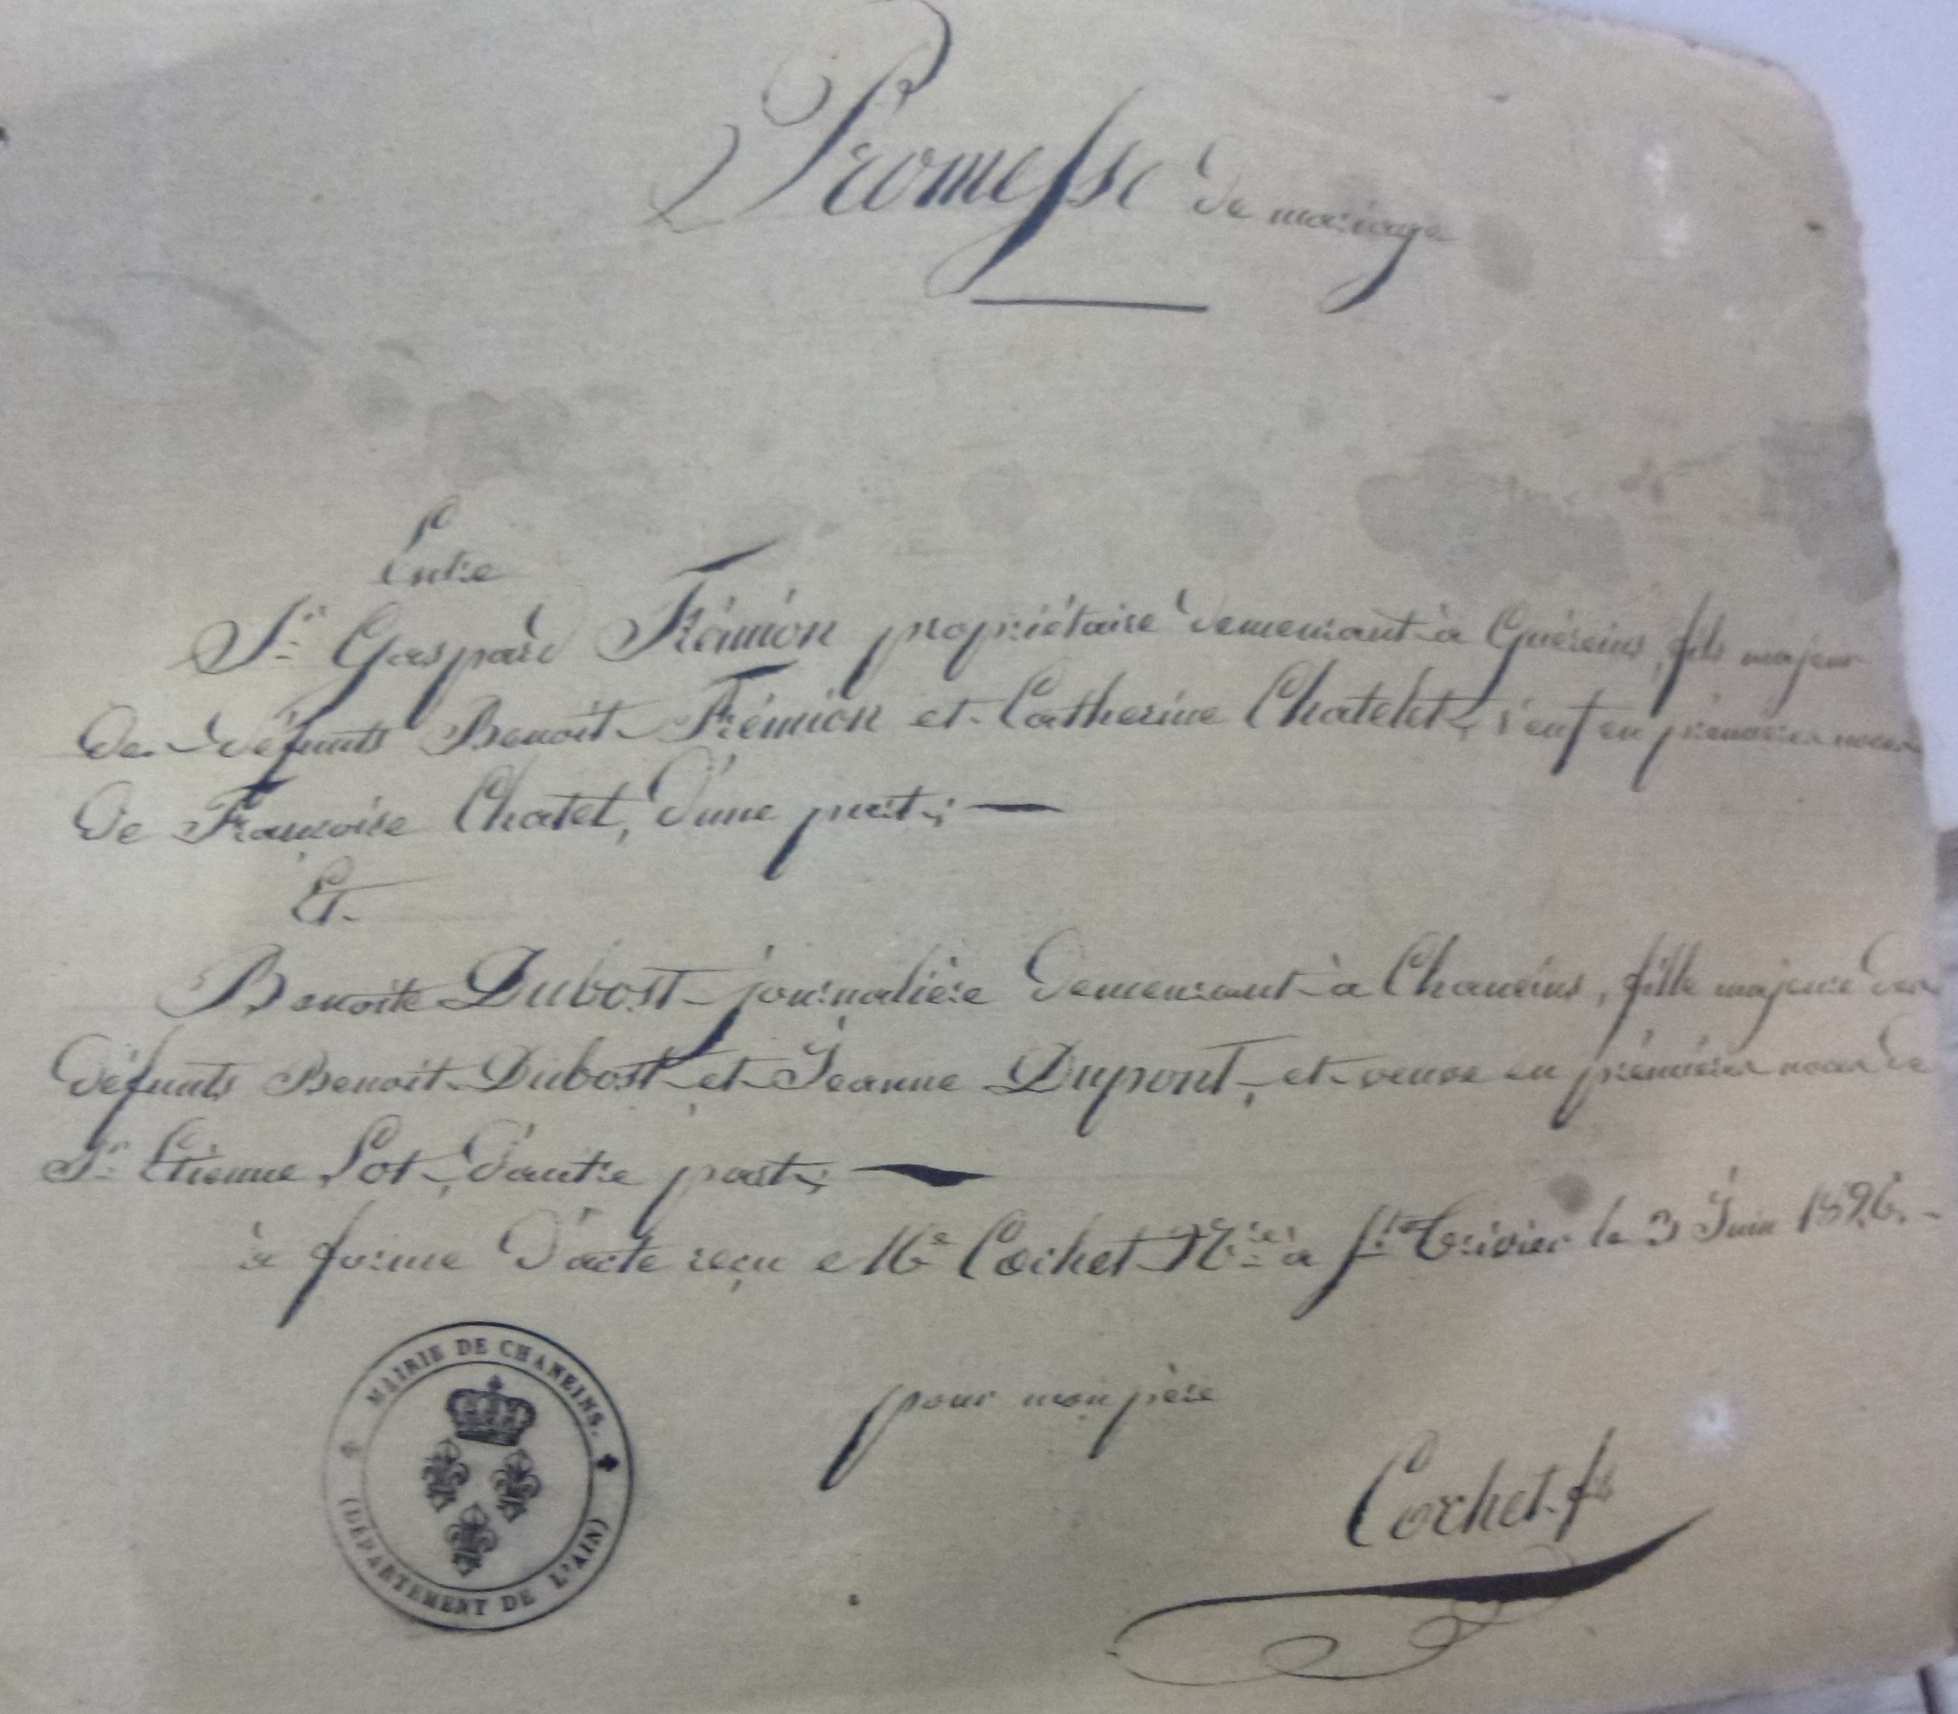 Promesse de mariage
Entre
Sr. Gaspard Frémion propriétaire demeurant à Guéreins, fils majeur
de défunts Benoit Frémion et Catherine Chatelet, veuf en prémieres noces
de Francoise Chatet, d'une part;
Et
Benoite Dubost journalière demeurant à Chaneins, fille majeure des
défunts Benoit Dubost et Jeanne Dupont, et veuve en prémières noces de
Sr. Etienne Lot, d'autre part;
à forme d'acte reçu Me Cochet Nre à St Trivier le 3 Juin 1826.
pour mon père
Cochet fs
MAIRIE DE CHANEINS.
(DÉPARTEMENT DE L'AIN)